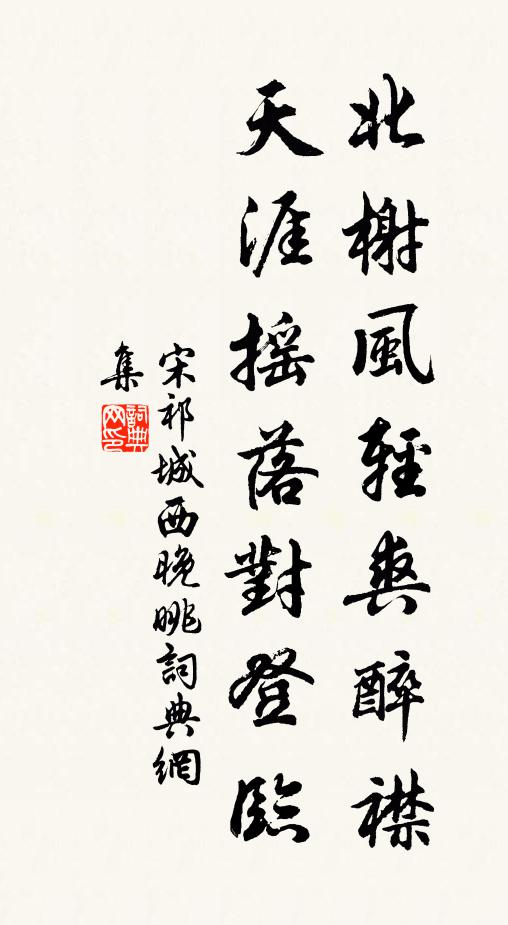 北榭風輕爽醉襟
天涯搖落對登臨
宋祁城西晚眺詞典網
集
詞典網印